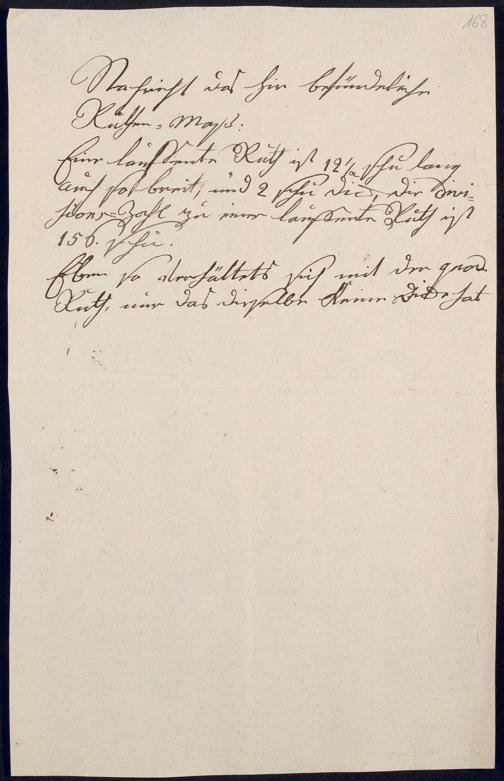 168
Nachricht das hir befündeliche
Ruthen-Maß:
Eine lauffente Ruth ist 12½ schu lang
auch so breit, und 2 schu dic, die Divi-
sions-Zahl zu einer lauffente Ruth ist
156. schu.
Eben so verhältets sich mit der quad.
Ruth, nur das dieselbe keine Dicke hat